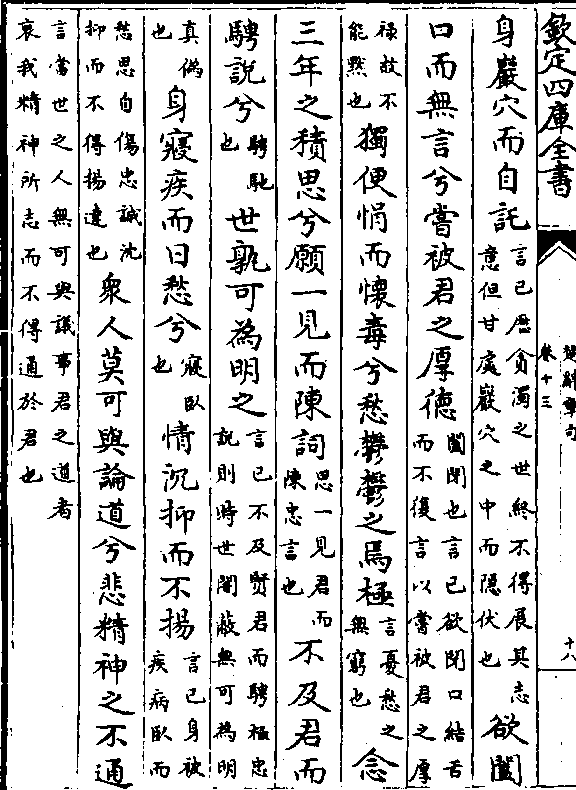 欽定四庫全書
楚辭章句
卷十三
十八
身巖穴而自託言已歷貪濁之世終不得展其志意但甘處巖穴之中而隱伏也欲闔
口而無言兮嘗被君之厚德闔閉也言已欲閉口結舌而不復言以嘗被君之厚
祿故不能黙也獨便悁而懷毒兮愁鬱鬱之焉極言憂愁之無窮也念
三年之積思兮願一見而陳詞思一見君而陳忠言也不及君而
騁說兮騁馳也世孰可為明之言已不及賢君而騁極忠說則時世闇蔽無可為明
真偽也身寢疾而日愁兮寢臥也情沉抑而不揚言已身被疾病臥而
愁思自傷忠誠沈抑而不得揚達也衆人莫可與論道兮悲精神之不通
言當世之人無可與議事君之道者哀我精神所志而不得通於君也